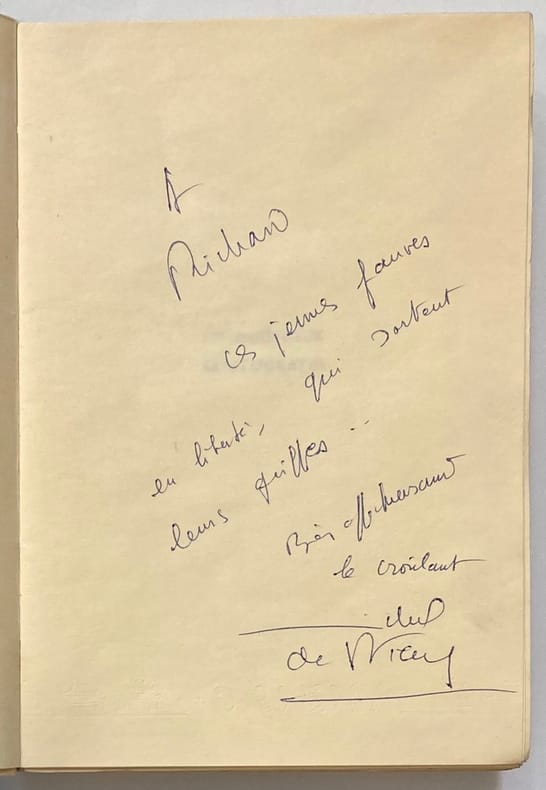 À
Richard
ces jeunes fauves
en liberté, qui sortent
leurs griffes...
Bien affectueusement
le croulant
Michel
de